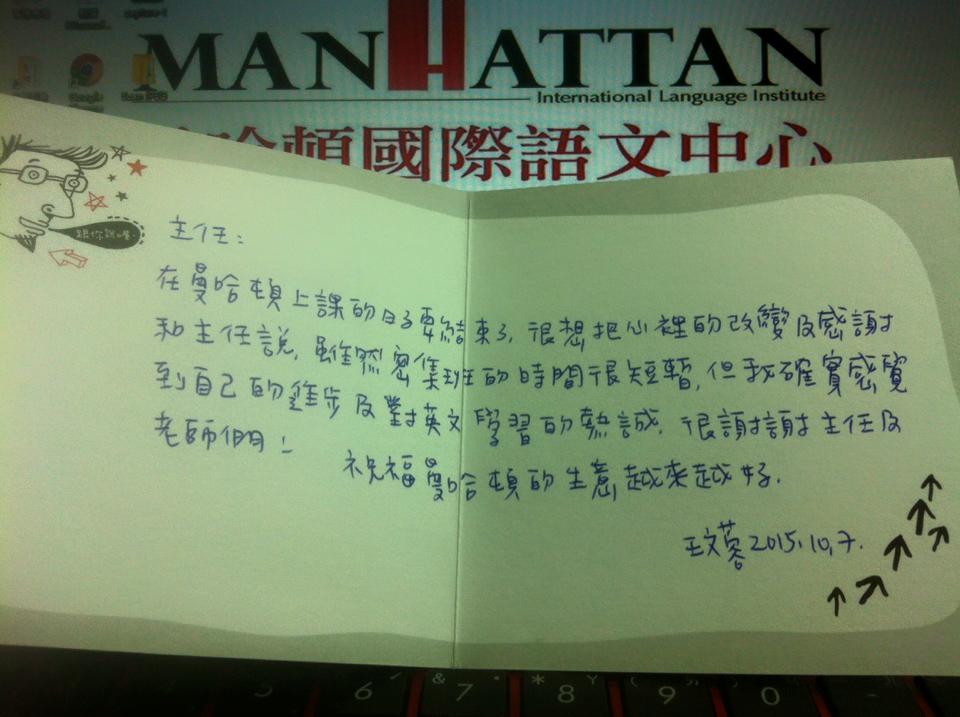 MANHATTAN
International Language Institute
哈頓國際語文中心
Google
跟你說喔.
主任：
在曼哈頓上課的日子要結束了, 很想把心裡的改變及感謝
和主任說, 雖然密集班的時間很短暫, 但我確實感覺
到自己的進步及對英文學習的熱誠. 很謝謝主任及
老師們！
祝福曼哈頓的生意越來越好.
王文蓉 2015.10.7.
5 6 & 7 * 8 9 0